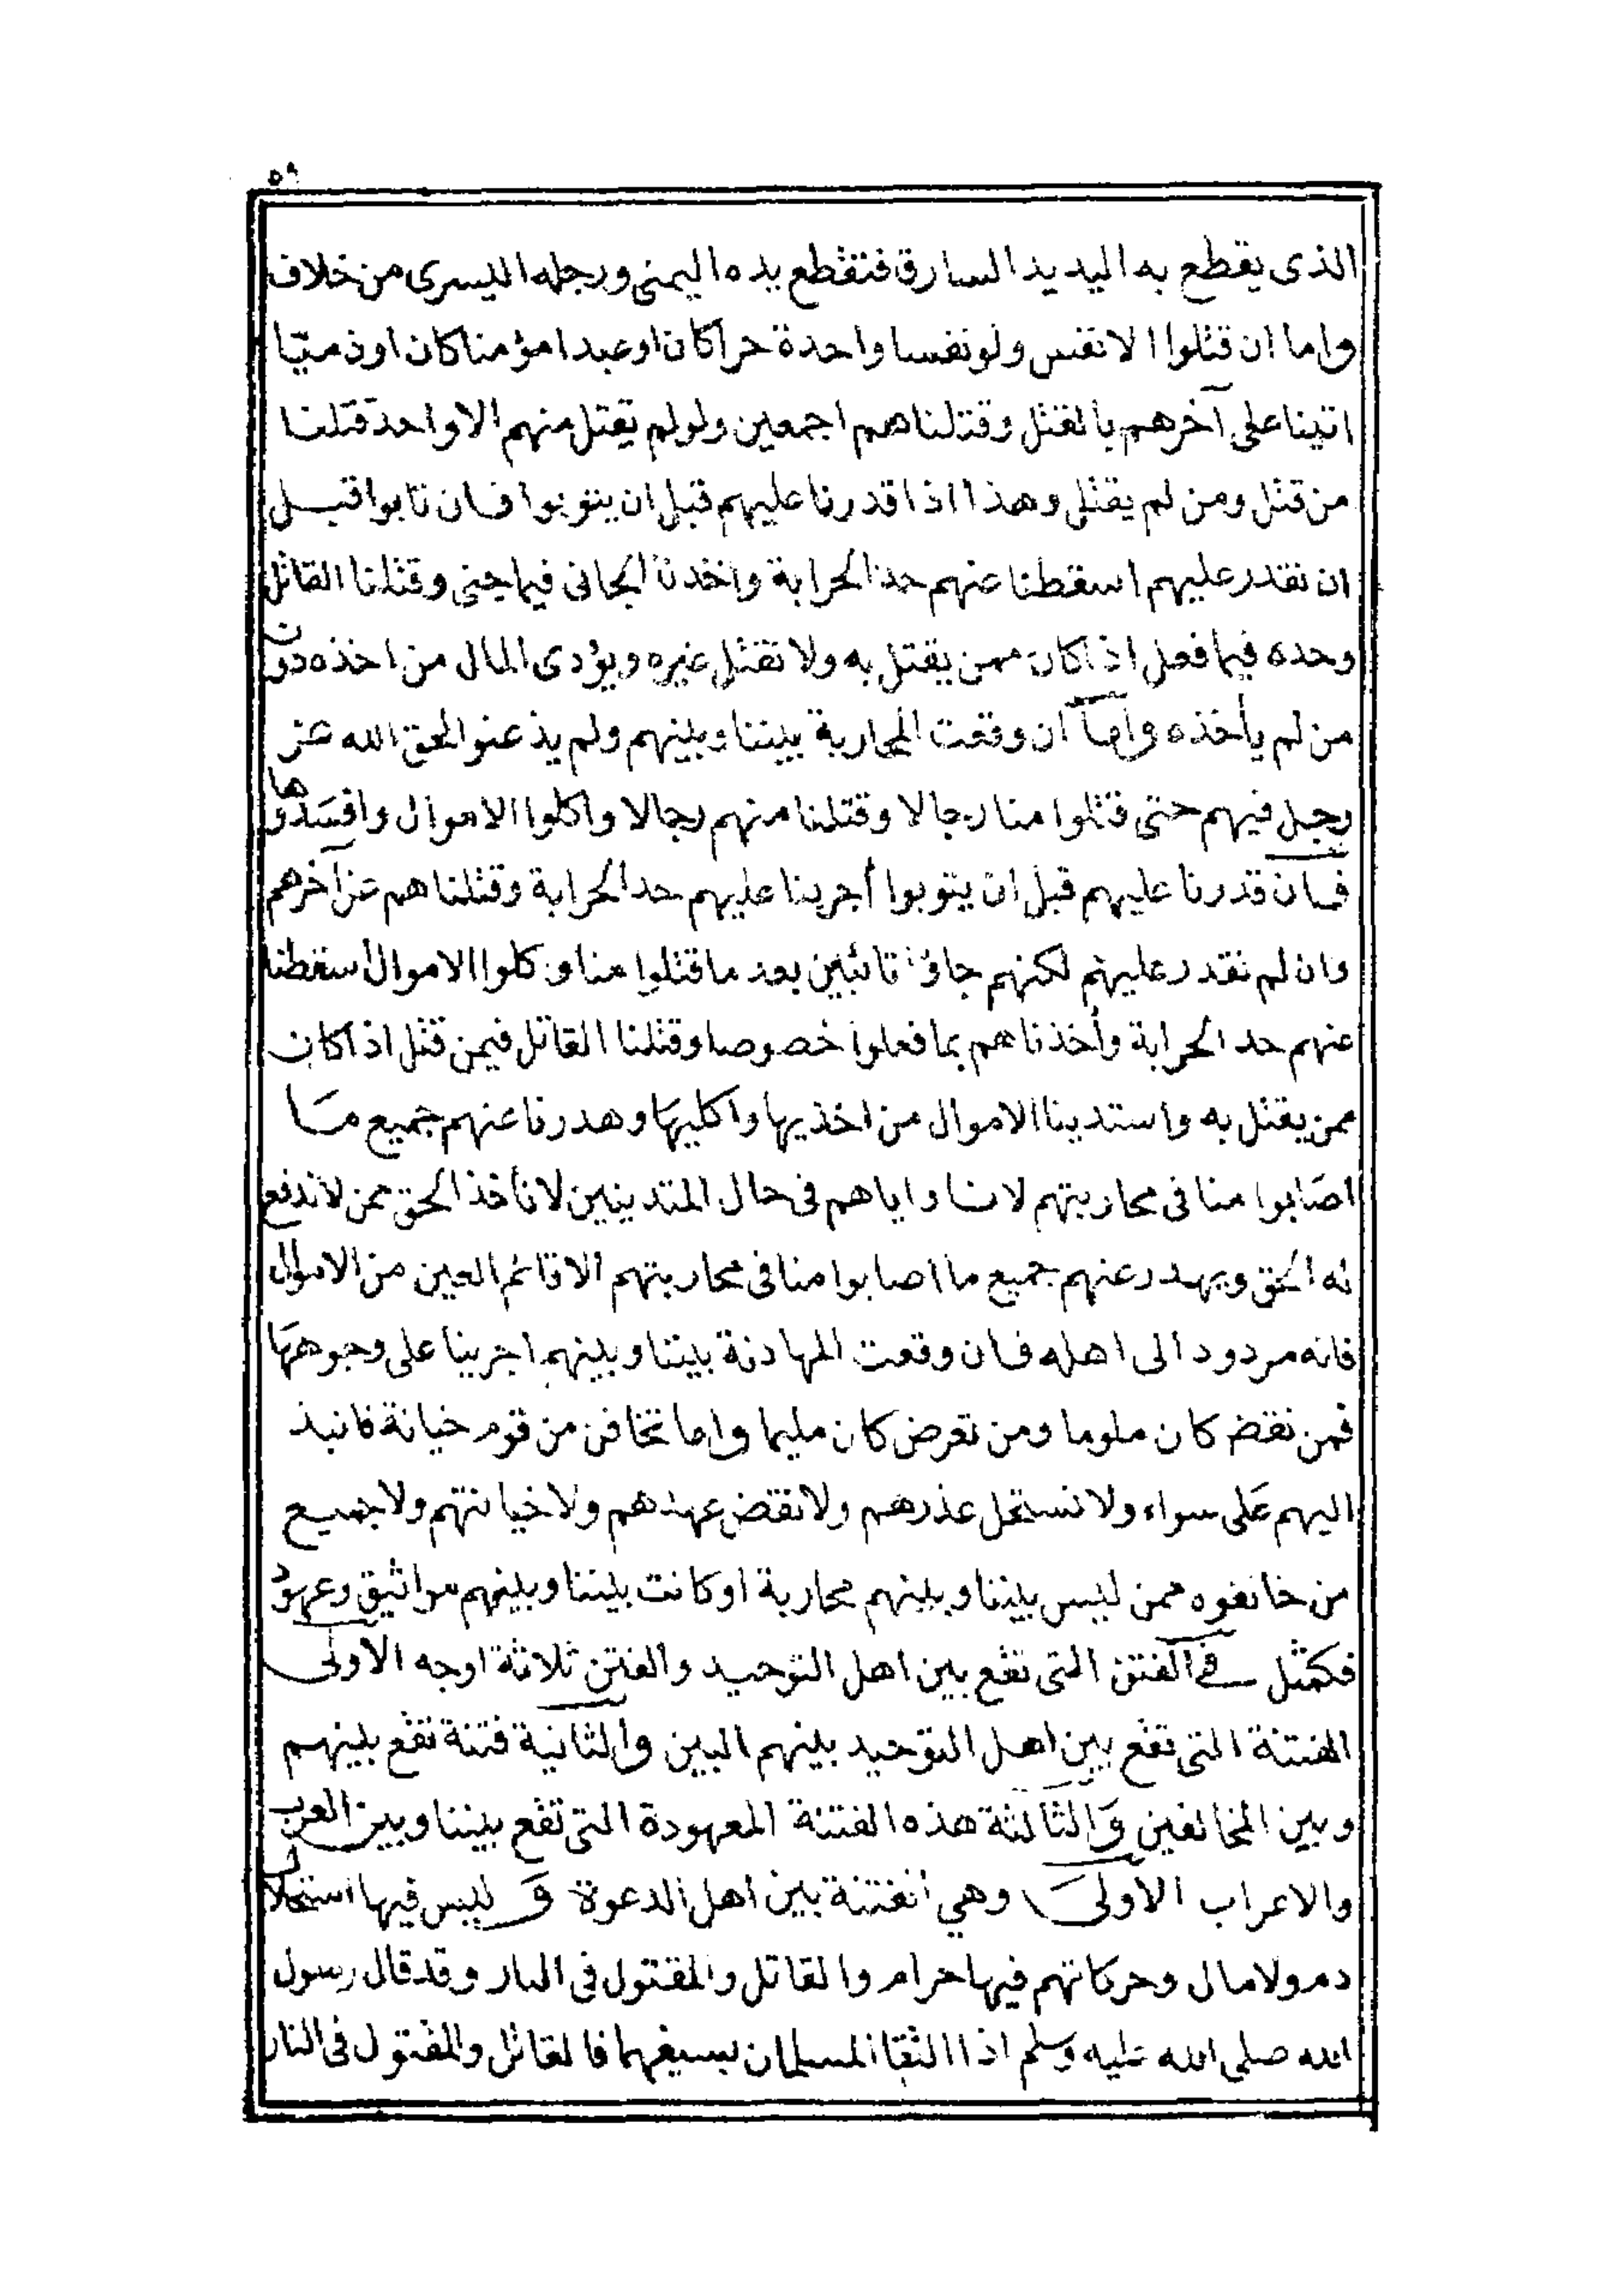 ٥٩
الذى يقطع به اليد يد السارق فتقطع يده اليمنى ورجله اليسرى من خلاف
واما ان قتلوا الانفس ولو نفسا واحدة حرا كان او عبدا مؤمنا كان او ذميّا
اتينا على آخرهم بالقتل وقتلناهم اجمعين ولو لم يقتل منهم الا واحد قتلنا
من قتل ومن لم يقتل وهذا اذا قدرنا عليهم قبل ان يتوبوا فان تابوا قبل
ان نقدر عليهم اسقطنا عنهم حد الحرابة واخذنا الجانى فيما جنى وقتلنا القاتل
وحده فيما فعل اذا كان ممن يقتل به ولا نقتل غيره ويؤدى المال من اخذه دون
من لم يأخذه وأما ان وقعت المحاربة بيننا وبينهم ولم يذعنوا لحق الله عز
وجل فيهم حتى قتلوا منا رجالا وقتلنا منهم رجالا واكلوا الاموال وافسدوها
فان قدرنا عليهم قبل ان يتوبوا أجرينا عليهم حد الحرابة وقتلناهم عن آخرهم
وان لم نقدر عليهم لكنهم جاؤا تائبين بعد ما قتلوا منا وكلوا الاموال أسقطنا
عنهم حد الحرابة وأخذناهم بما فعلوا خصوصا وقتلنا القاتل فيمن قتل اذا كان
ممن يقتل به واستدينا الاموال من اخذيها واكليها وهدرنا عنهم جميع ما
اصابوا منا فى محاربتهم لانا واياهم فى حال المتدينين لا نأخذ الحق ممن لا ندفع
له الحق ويهدر عنهم جميع ما اصابوا منا فى محاربتهم الا قائم العين من الاموال
فانه مردود الى اهله فان وقعت المهادنة بيننا وبينهم اجرينا على وجوهها
فمن نقض كان ملوما ومن تعرض كان مليما واما تخافن من قوم خيانة فانبذ
اليهم على سواء ولا نستحل غدرهم ولا نقض عهدهم ولا خيانتهم ولا جميع
من خالفوه ممن ليس بيننا وبينهم محاربة او كانت بيننا وبينهم مواثيق وعهود
فكمثل فى الفتن التى تقع بين اهل التوحيد والفتن ثلاثة اوجه الاولى
الفتنة التى تقع بين اهل التوحيد بينهم البين والثانية فتنة تقع بينهم
وبين المخالفين والثالثة هذه الفتنة المعهودة التى تقع بيننا وبين العرب
والاعراب الاولى وهي الفتنة بين اهل الدعوة و ليس فيها استحلال
دم ولا مال وحركاتهم فيها حرام والقاتل والمقتول فى النار وقد قال رسول
الله صلى الله عليه وسلم اذا التقا المسلمان بسيفيهما فالقاتل والمقتول فى النار